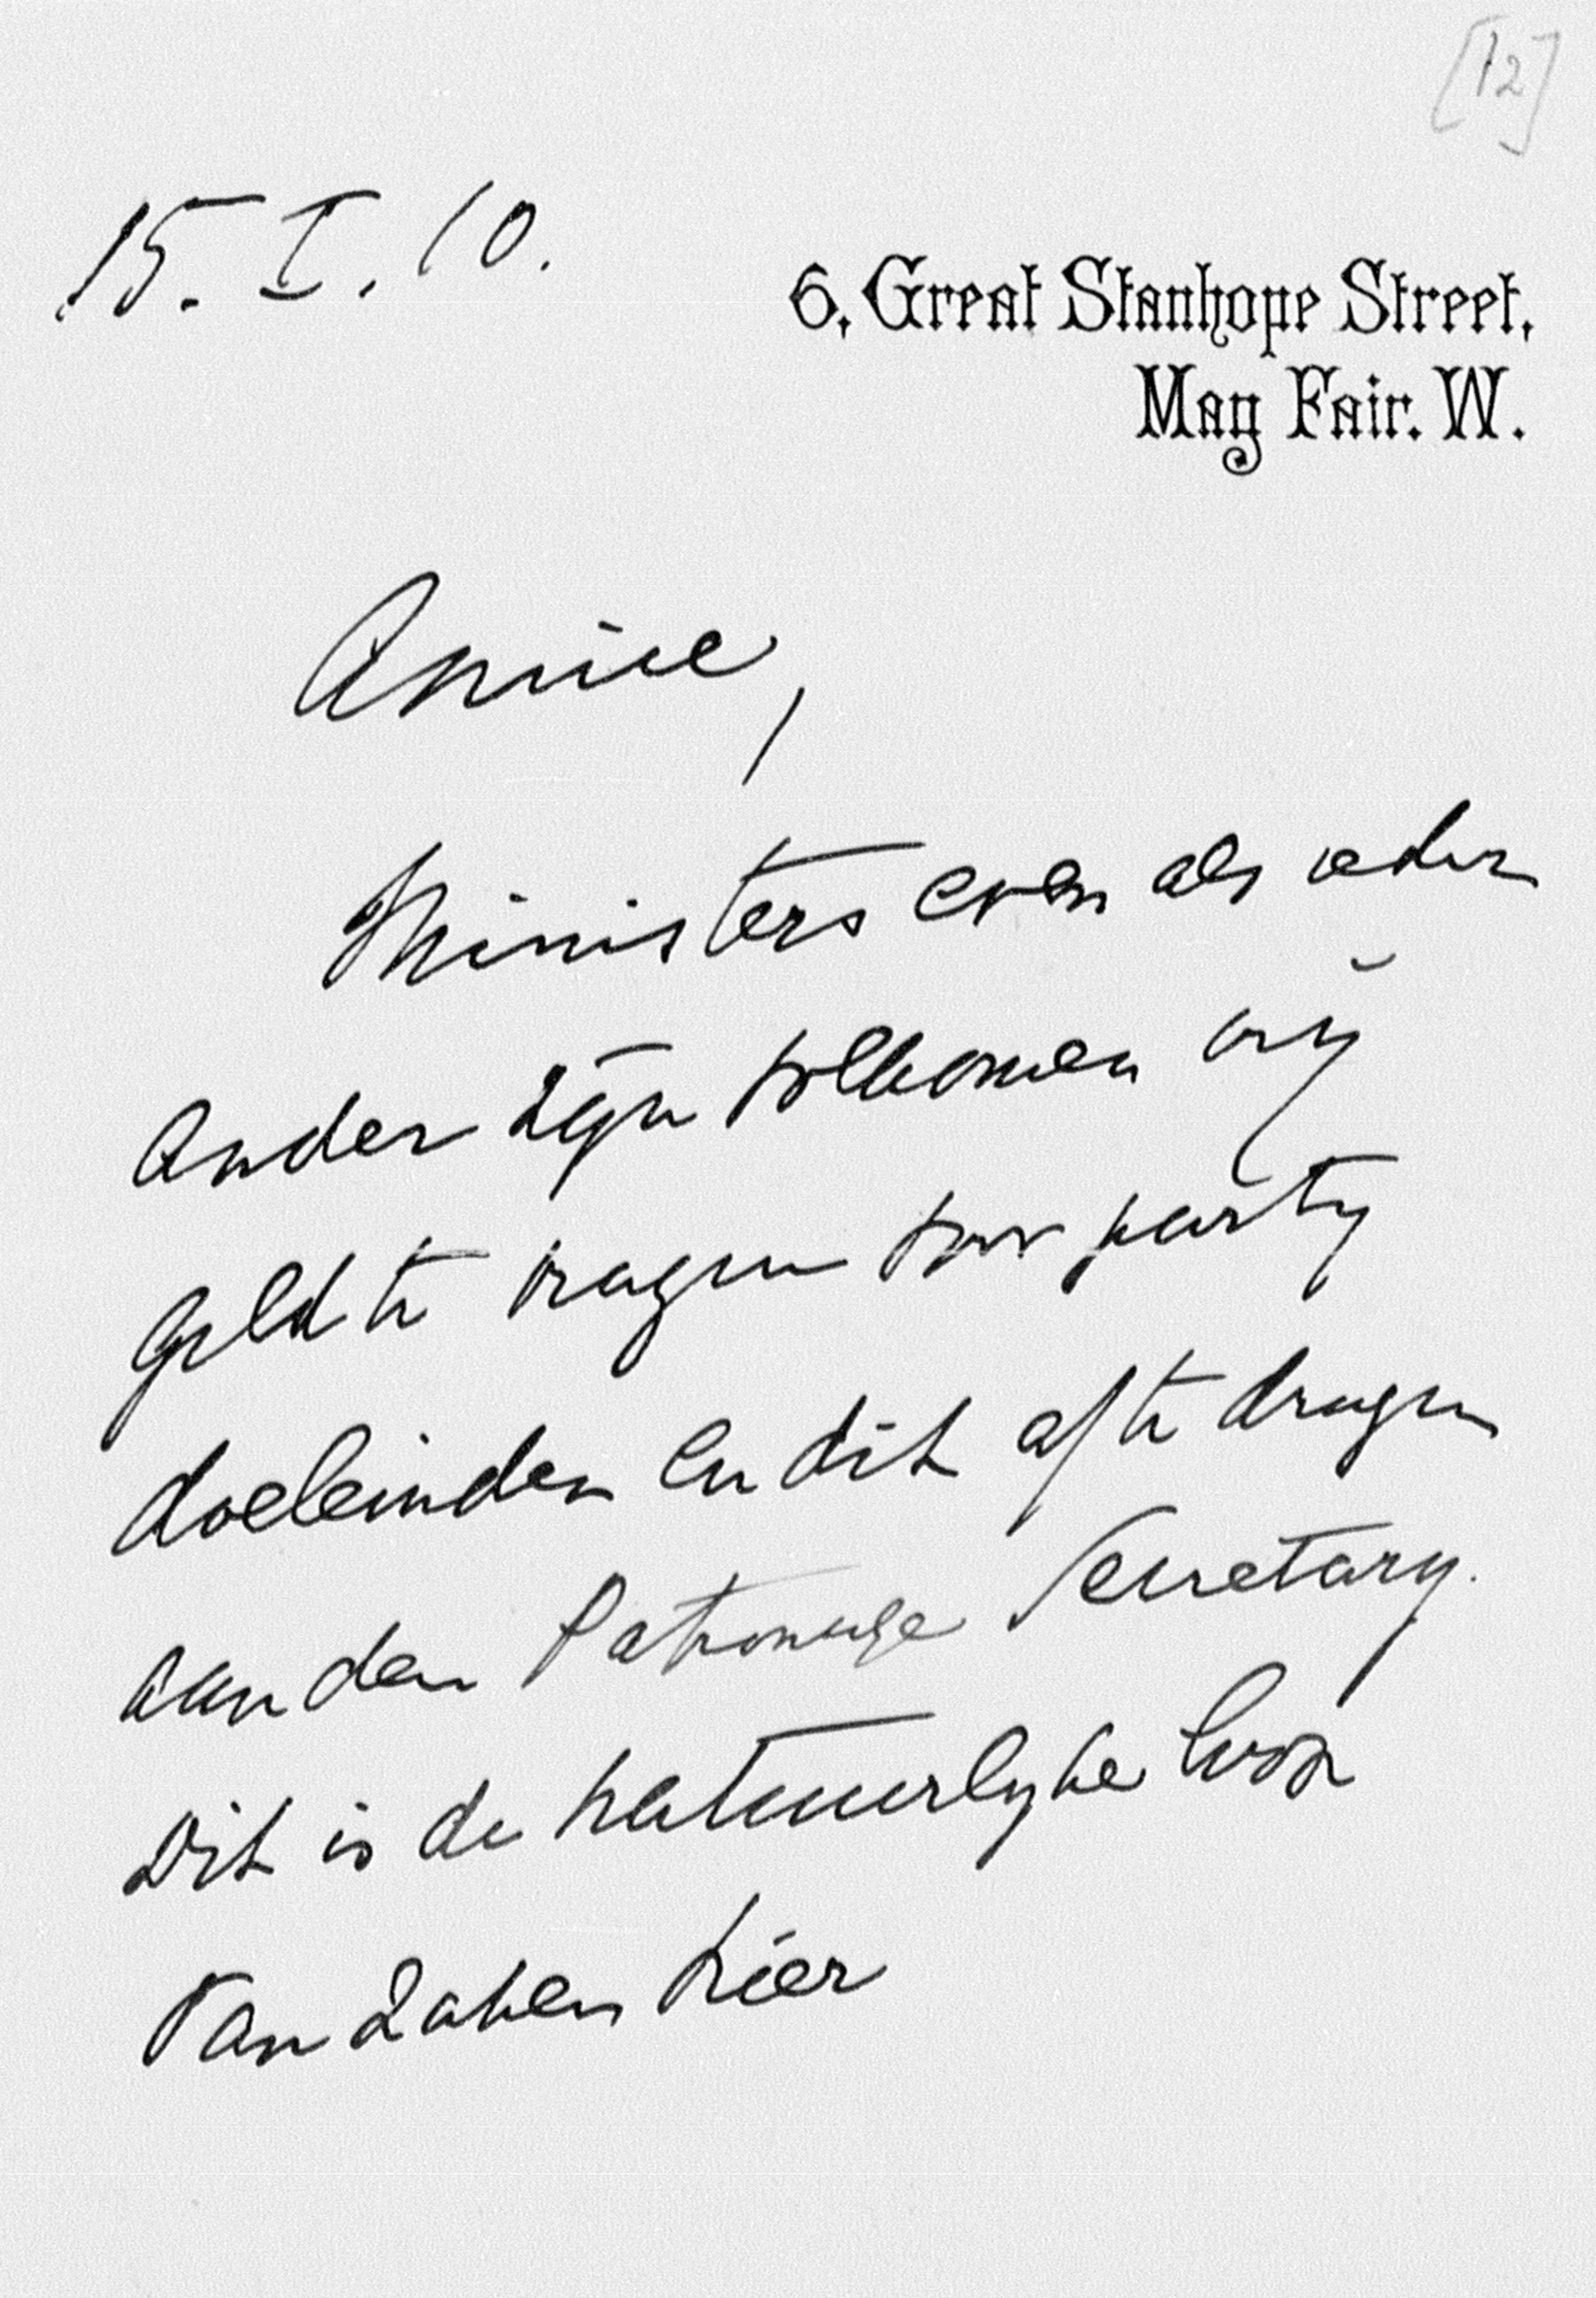 [12]
15. I. 10.
6, Great Stanhope Street,
May Fair. W.
Amice,
Ministers even als ieder
ander zijn volkomen vrij
geld te vragen voor party
doeleinden en dit af te dragen
aan den Patronage Secretary.
Dit is de natuurlyke loop
van zaken hier